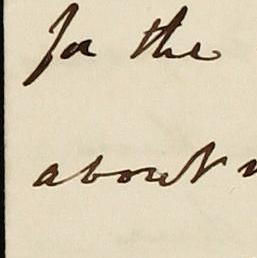 for the
about